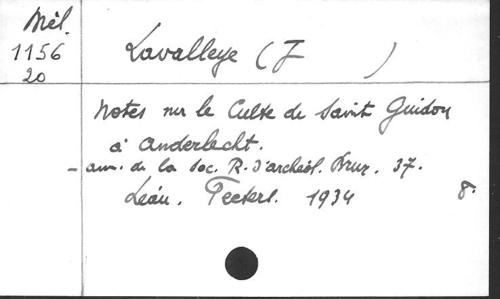 Mél.
1156
20
Lavalleye (J )
Notes sur le Culte de Saint Guidon
à Anderlecht.
- ann. de la Soc. R. d'archéol. Brux. 37.
Peeters. 1934 8.